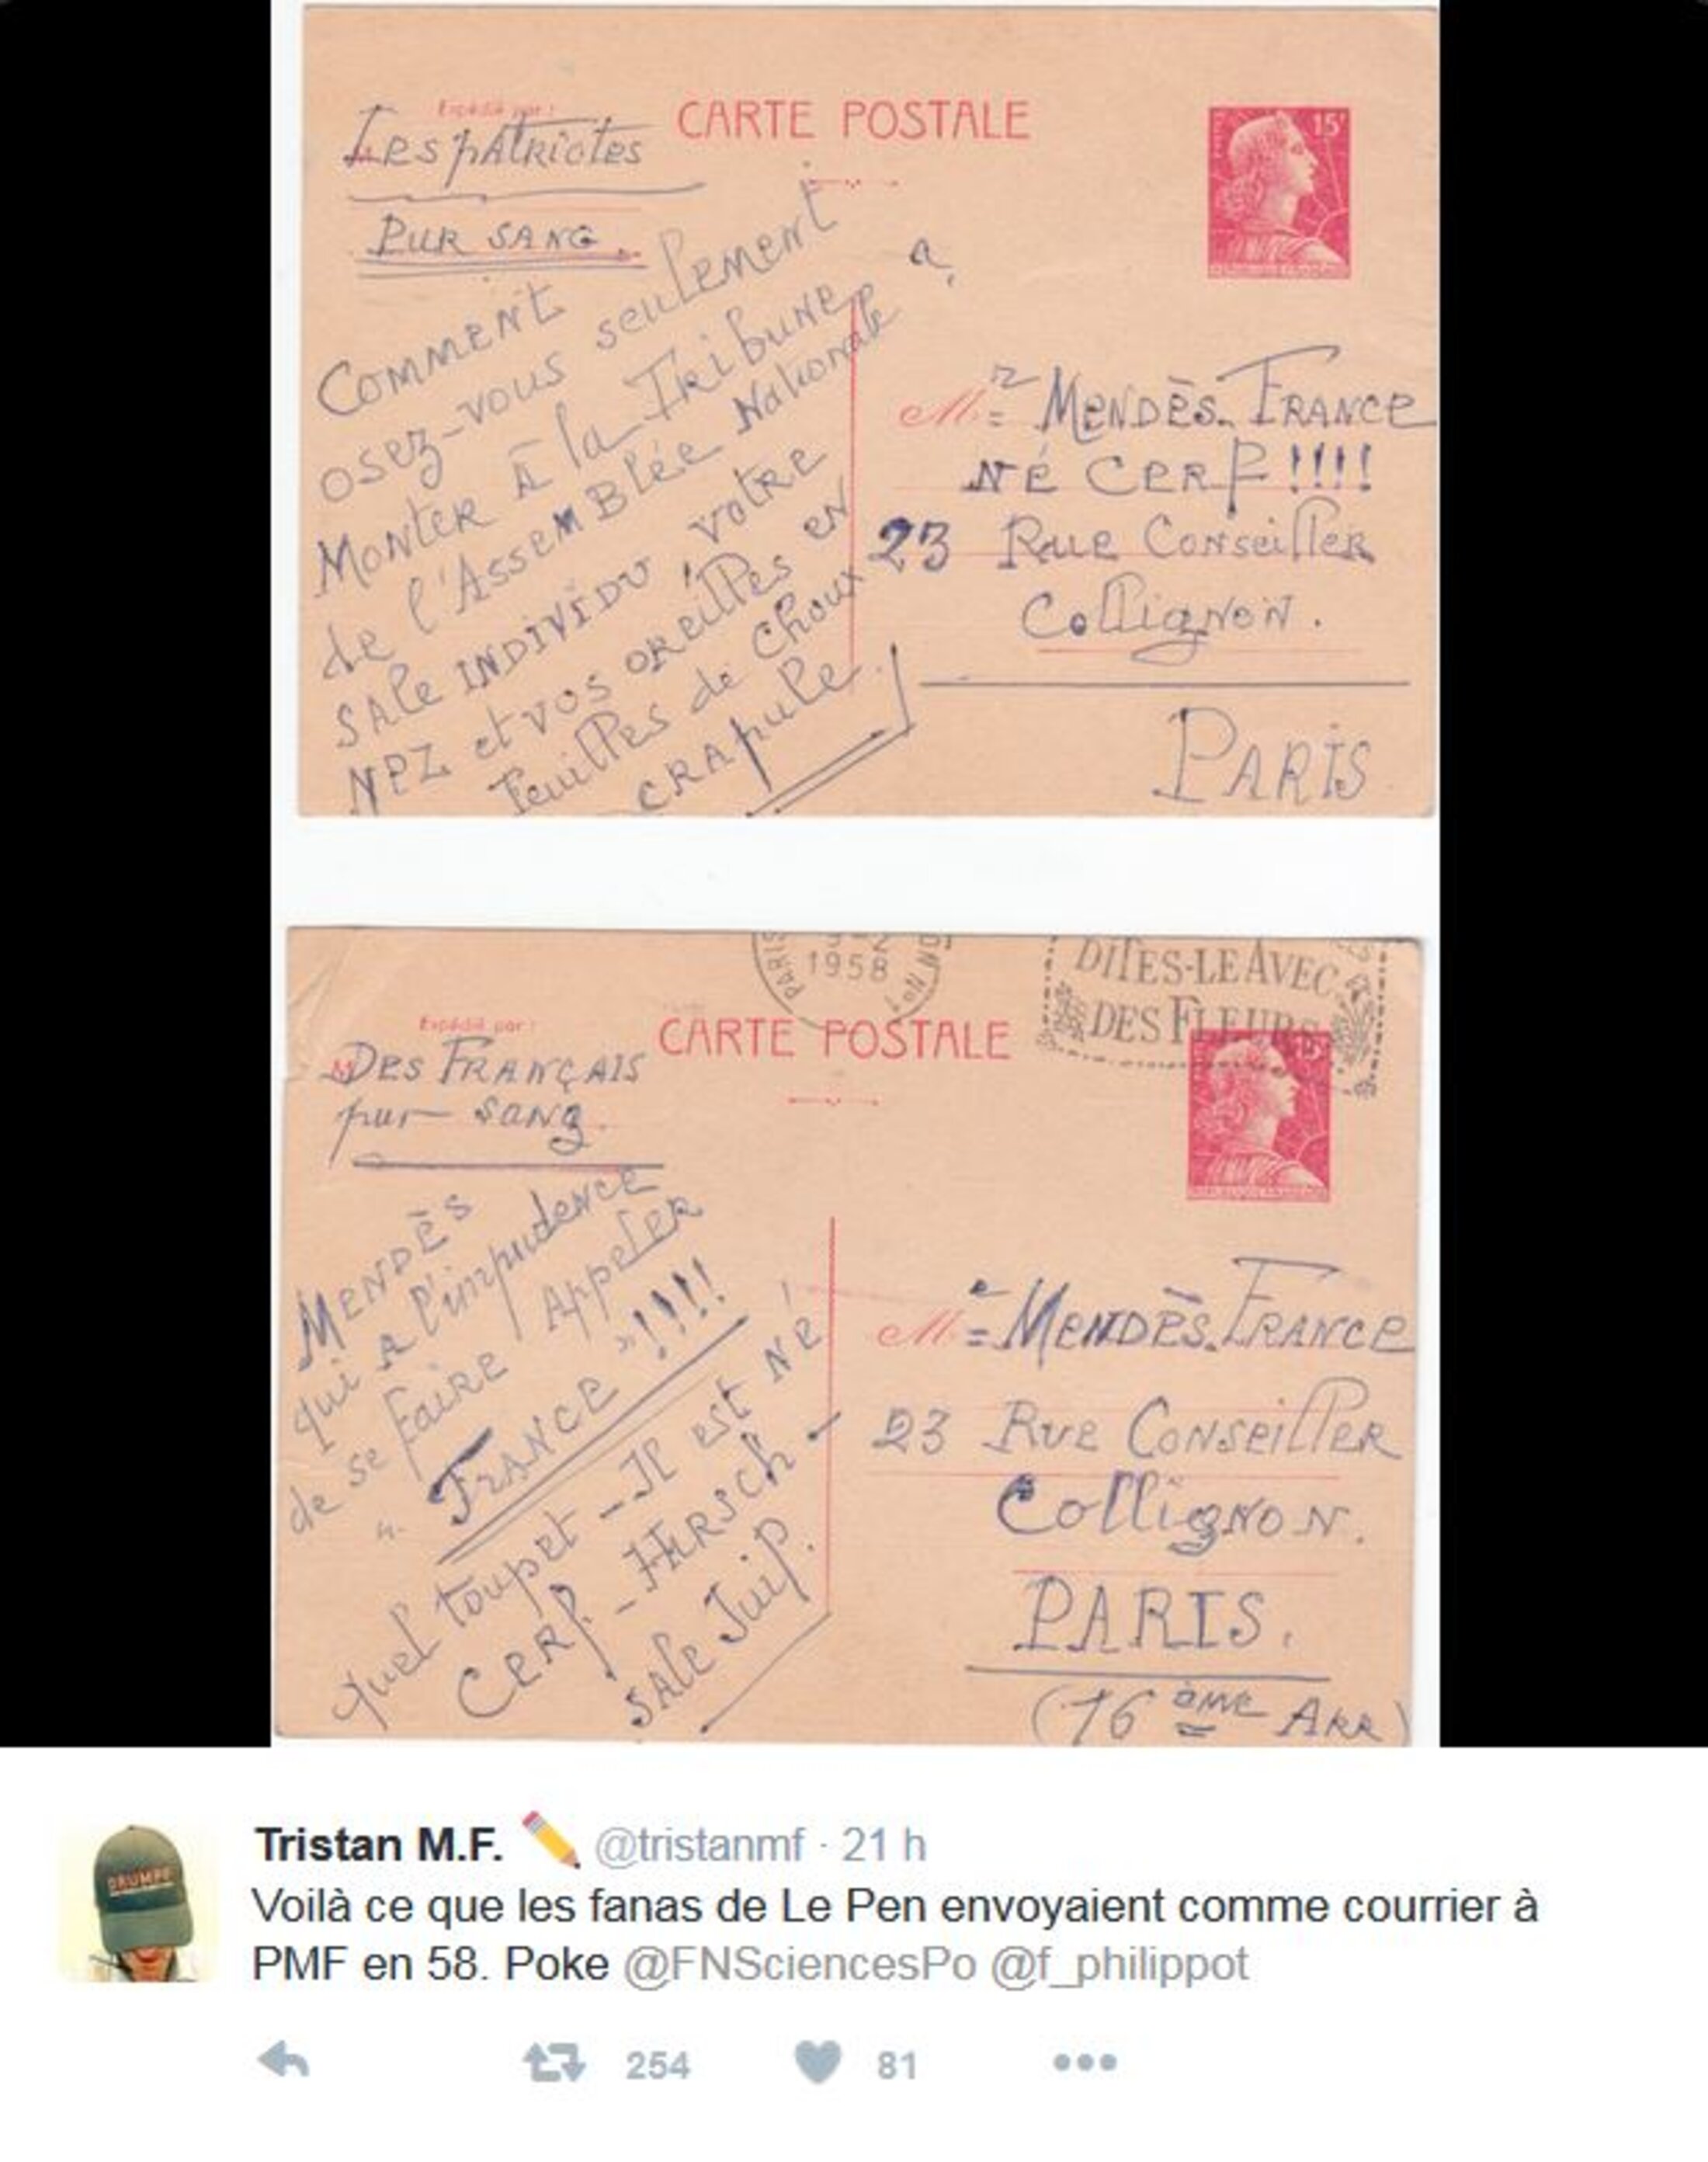 Expédié par :
CARTE POSTALE
15F
Les pAtRiotes
PUR SANG.
Comment
osez-vous seulement
Monter À la Tribune
de l'Assemblée Nationale
SAle INDIVIDU, votre
NEZ et vos oreilles en
Feuilles de Choux
CRApule
a,
Mr MENDÈS-FRANCE
NÉ CERF!!!!
23 Rue Conseiller
Collignon.
PARIS
PARIS
1958
DITES-LE AVEC
DES FLEURS
Expédié par :
CARTE POSTALE
15F
M DES FRANÇAIS
pur-sang.
MENDÈS
qui A l'impudence
de se faire Appeler
" FRANCE "!!!!
quel toupet - Il est NÉ
CERf - HIRSCH -
SAle Juif.
Mr MENDÈS-FRANCE
23 Rue Conseiller
Collignon.
PARIS.
(16ème ARR)
DRUMPF
Tristan M.F. ✏️ @tristanmf · 21 h
Voilà ce que les fanas de Le Pen envoyaient comme courrier à
PMF en 58. Poke @FNSciencesPo @f_philippot
254 81